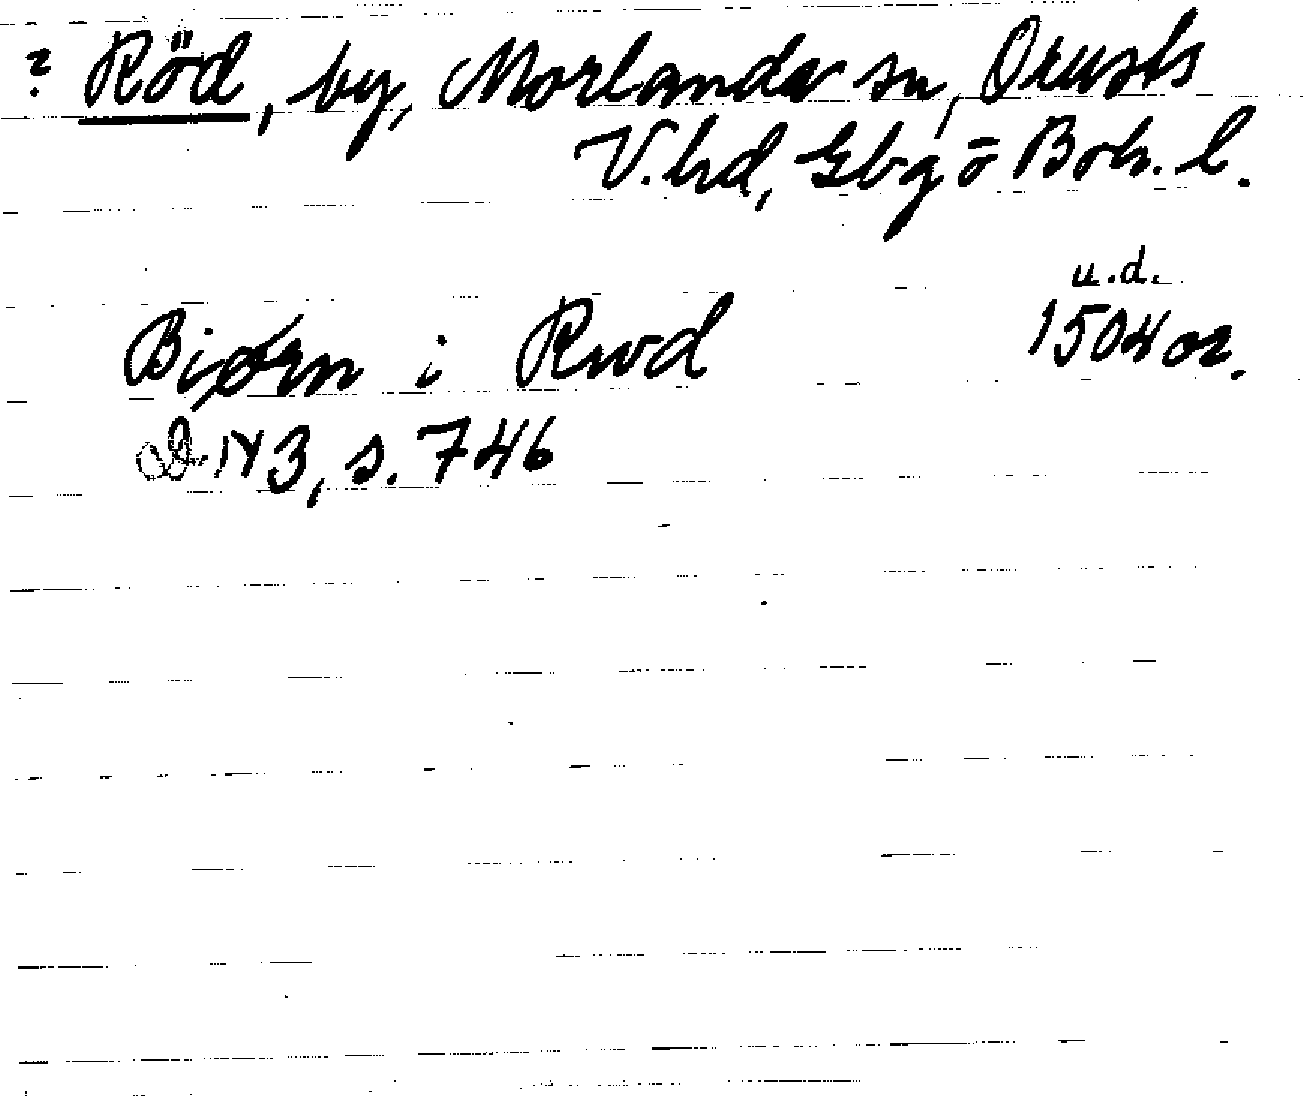 ? Röd, by, Morlanda sn, Orusts
V. hd, Gbg o Boh. l.
u.d.
Biørn i Rwd 1504 or.
NY 3, s. 746